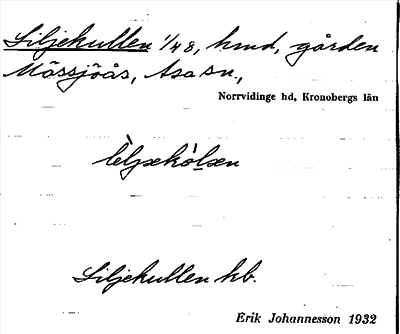 Liljekullen 1/48, hmd, gården
Mössjöås, Asa sn.,
Norrvidinge hd, Kronobergs län
Liljekullen hb.
Erik Johannesson 1932